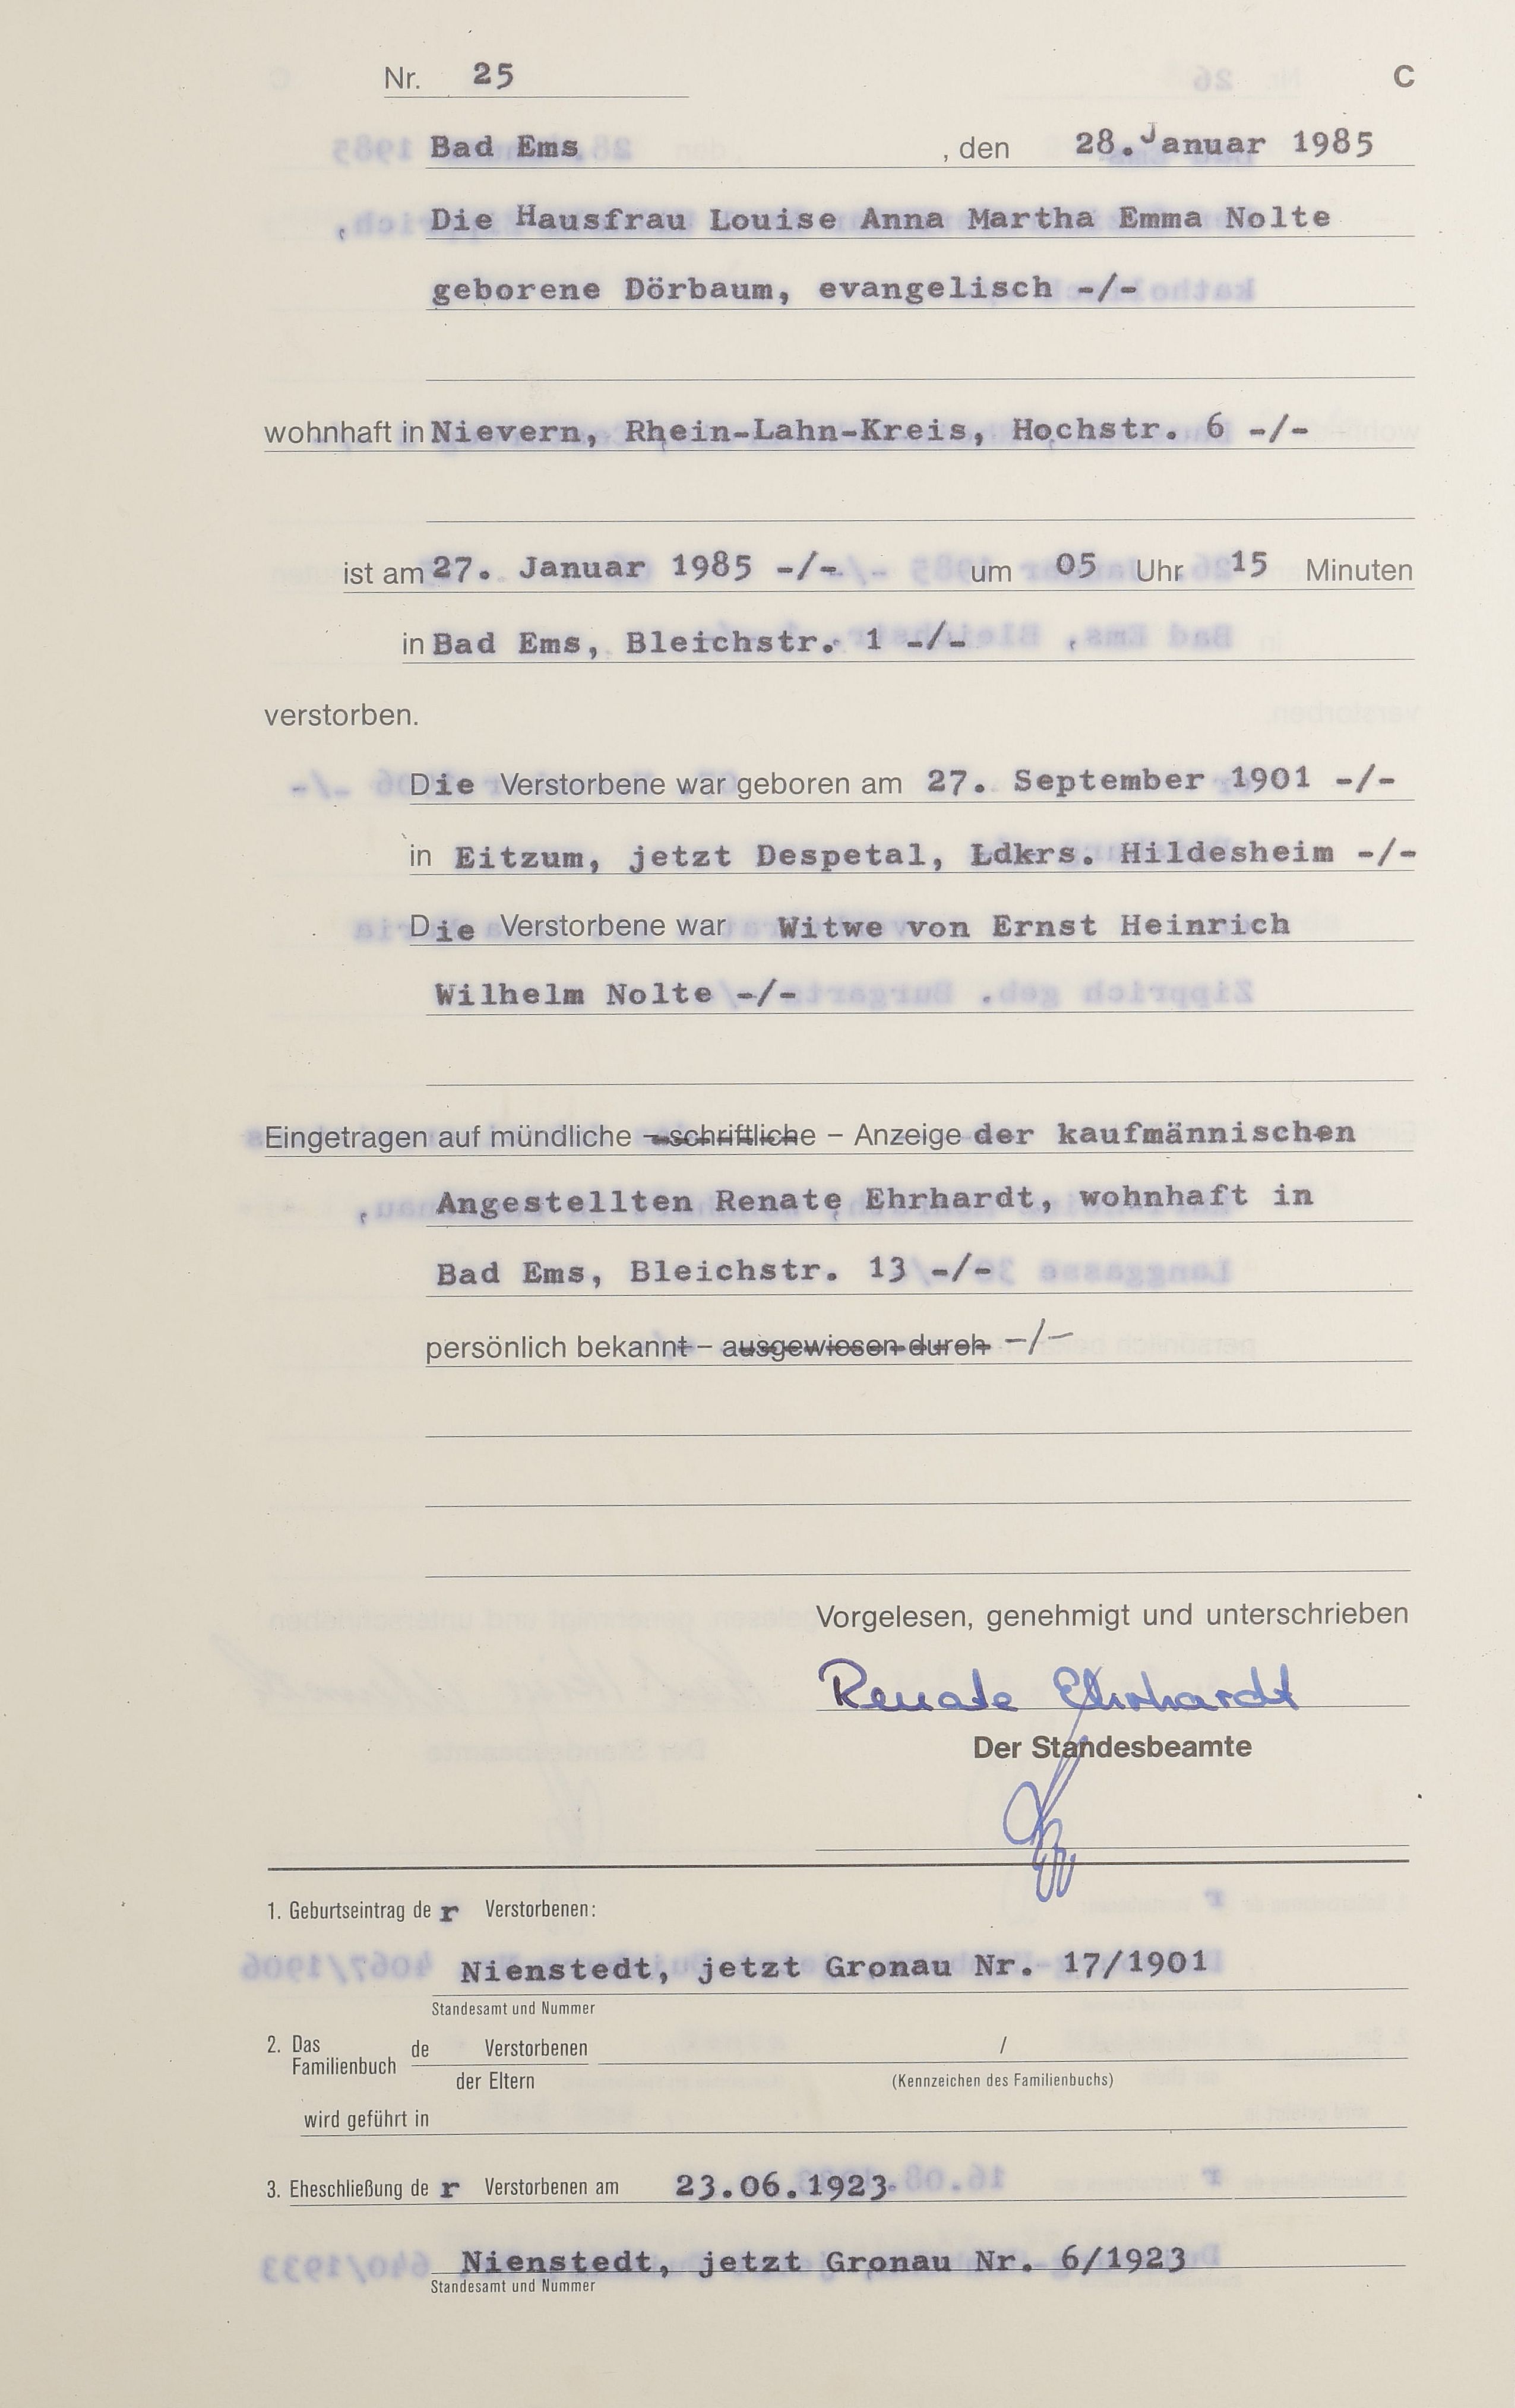 Nr. 25 C
Bad Ems , den 28. Januar 1985
Die Hausfrau Louise Anna Martha Emma Nolte
geborene Dörbaum, evangelisch -/-
wohnhaft in Nievern, Rhein-Lahn-Kreis, Hochstr. 6 -/-
ist am 27. Januar 1985 -/- um 05 Uhr 15 Minuten
in Bad Ems, Bleichstr. 1 -/-
verstorben.
Die Verstorbene war geboren am 27. September 1901 -/-
in Eitzum, jetzt Despetal, Ldkrs. Hildesheim -/-
Die Verstorbene war Witwe von Ernst Heinrich
Wilhelm Nolte -/-
Eingetragen auf mündliche – schriftliche – Anzeige der kaufmännischen
Angestellten Renate Ehrhardt, wohnhaft in
Bad Ems, Bleichstr. 13 -/-
persönlich bekannt – ausgewiesen durch -/-
Vorgelesen, genehmigt und unterschrieben
Renate Ehrhardt
Der Standesbeamte
1. Geburtseintrag de r Verstorbenen:
Nienstedt, jetzt Gronau Nr. 17/1901
Standesamt und Nummer
2. Das Familienbuch de Verstorbenen /
der Eltern (Kennzeichen des Familienbuchs)
wird geführt in
3. Eheschließung de r Verstorbenen am 23.06.1923
Nienstedt, jetzt Gronau Nr. 6/1923
Standesamt und Nummer